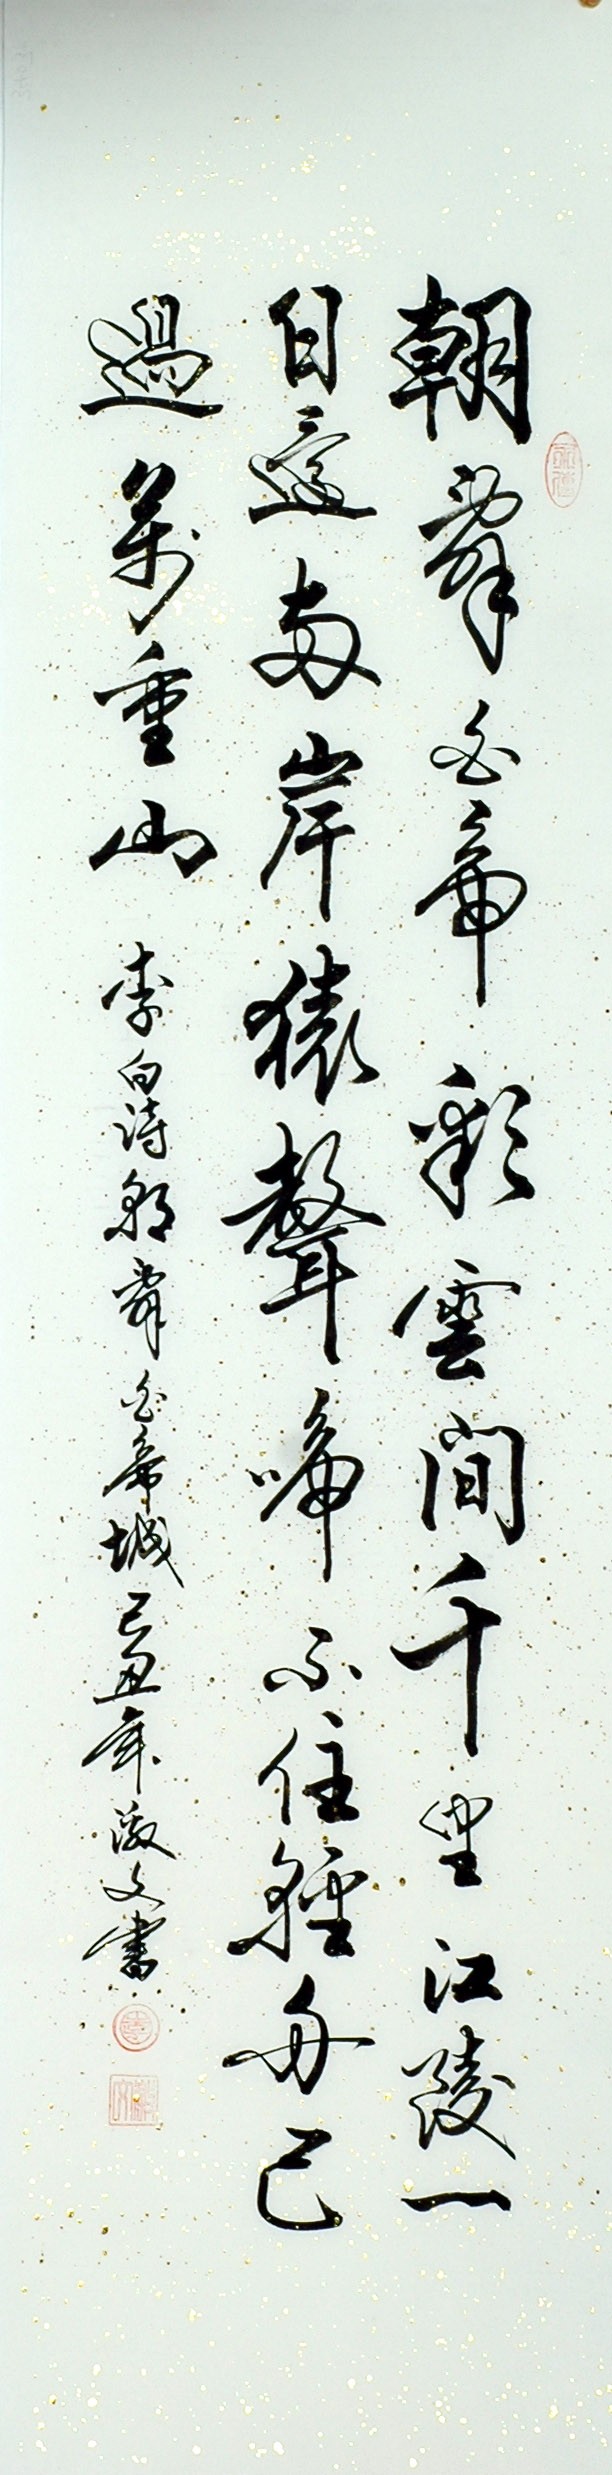 朝辭白帝彩雲間千里江陵一
日還兩岸猿聲啼不住輕舟已
過萬重山 李白詩朝辭白帝城己丑年文書